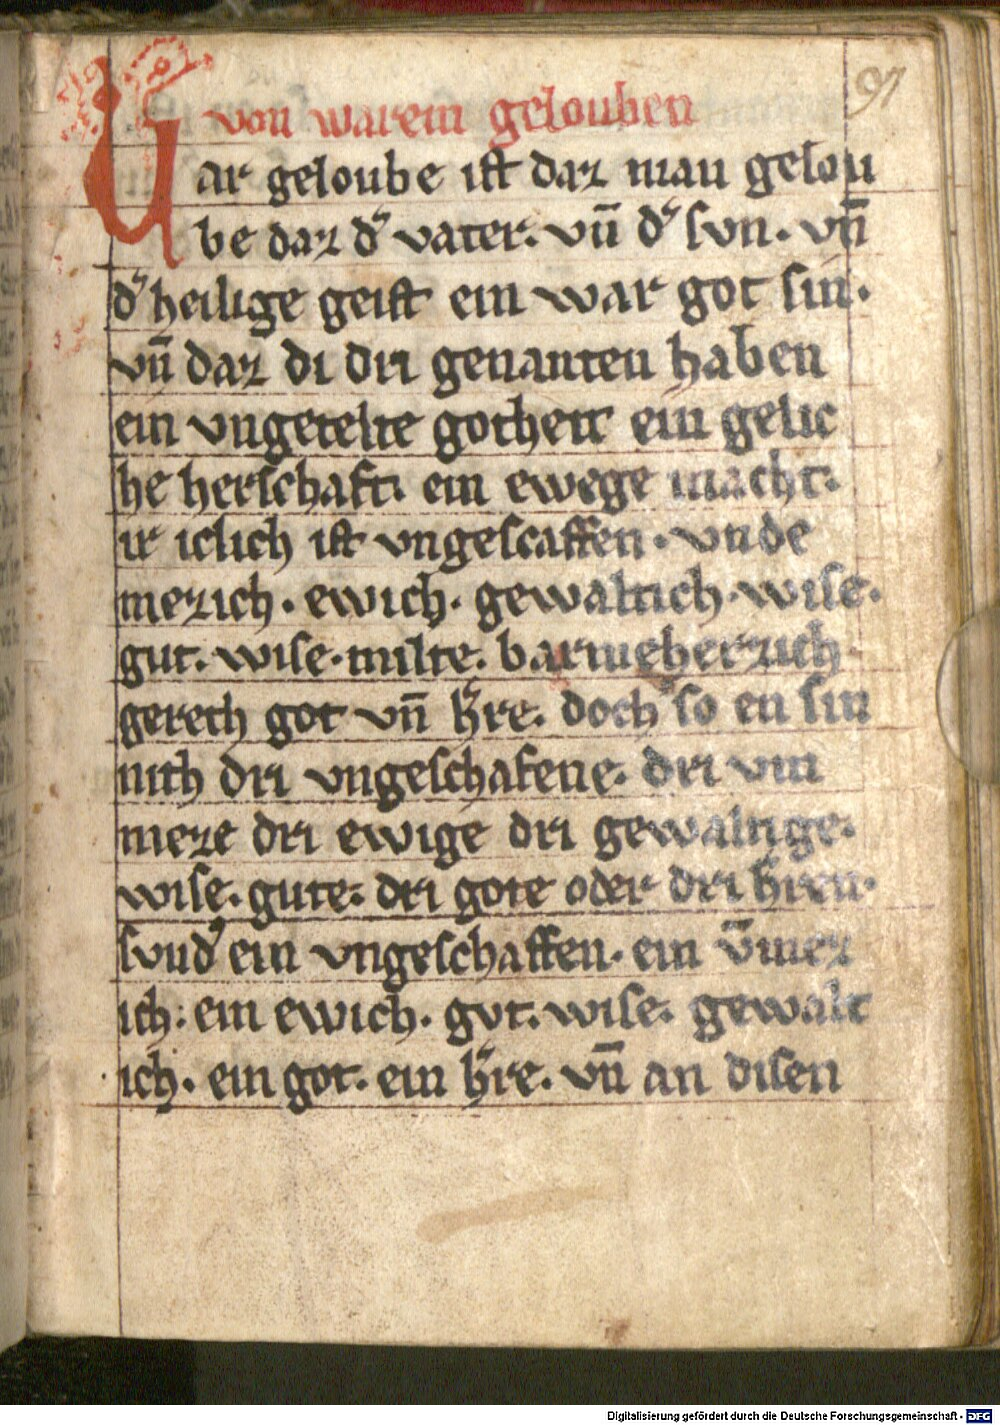 91
von warem gelouben
Uar geloube ist daz man gelou
be daz d͛ vater. vn̄ d͛ svn. vn̄
d͛ heilige geist ein war got sin.
vn̄ daz di dri genanten haben
ein vngetelte gotheit ein gelic
he herschaft. ein ewege macht.
ir iclich ist vngescaffen. vnde
mezich. ewich. gewaltich. wise.
gut. wise. milte. barmeherzich
gerech got vn̄ h͛re. doch so en sin
nith dri vngeschafene. dri vm
meze dri ewige dri gewaltige.
wise. gute. dri gote oder dri h͛ren.
svnd͛ ein vngeschaffen. ein v̄mez
ich. ein ewich. gvt. wise. gewalt
ich. ein got. ein h͛re. vn̄ an disen
Digitalisierung gefördert durch die Deutsche Forschungsgemeinschaft - DFG